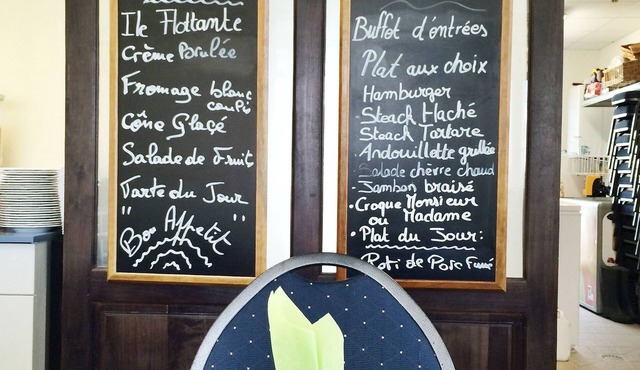 Ile Flottante
Crème Brulée
Fromage blanc
coulis
Cône Glaçé
Salade de Fruits
Tarte du Jour
" Bon Appétit "
Buffet d'éntrées
Plat aux choix
Hamburger
- Steack Haché
- Steack Tartare
- Andouillette grillée
- Salade chèvre chaud
- Jambon braisé
• Croque Monsieur
ou Madame
• Plat du Jour:
Roti de Porc Fumé